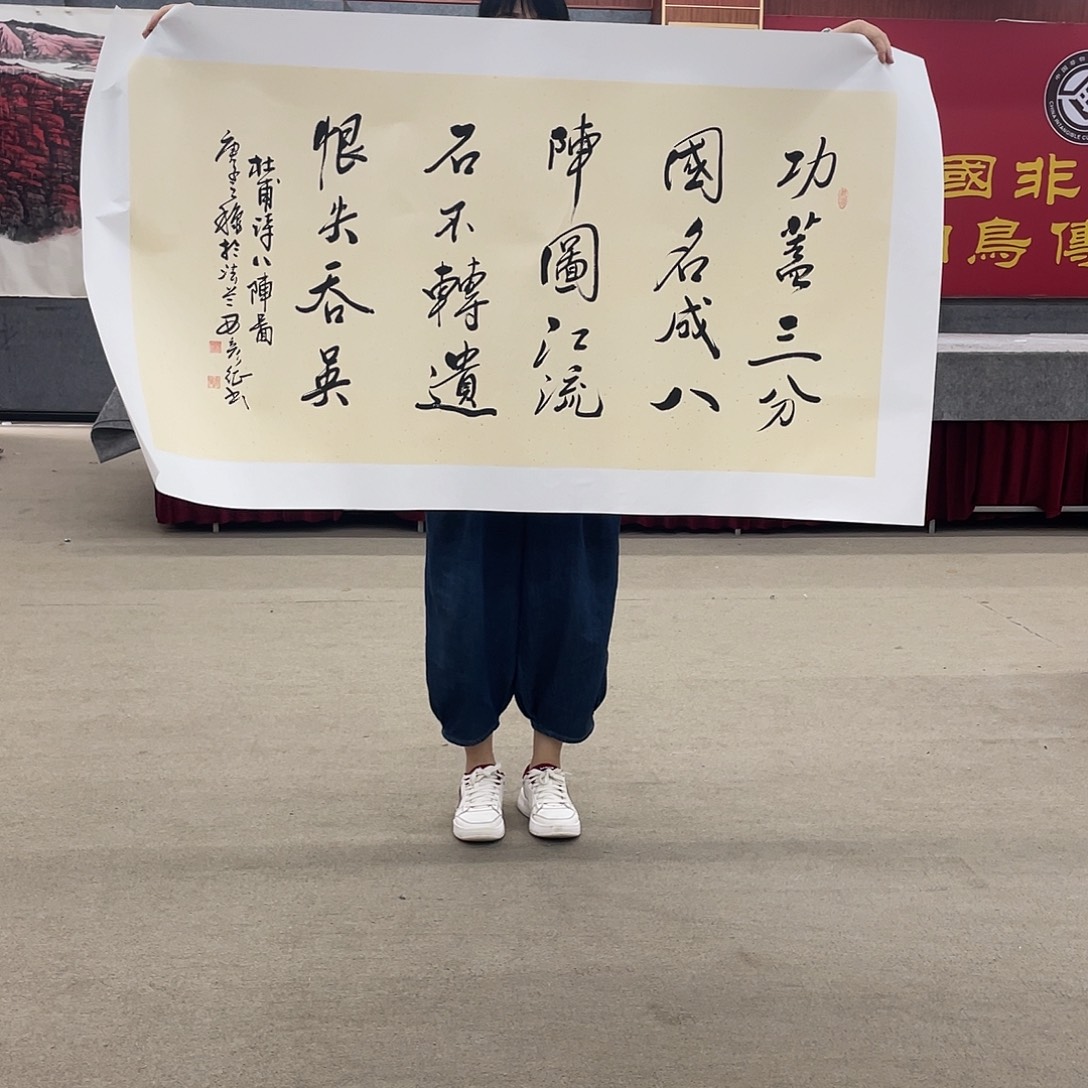 功蓋三分
國名成八
陣圖江流
石不轉遺
恨失吞吳
杜甫詩八陣圖
庚子之
於法兰
國非
鳥傳
CHINA INTANGIBLE CU